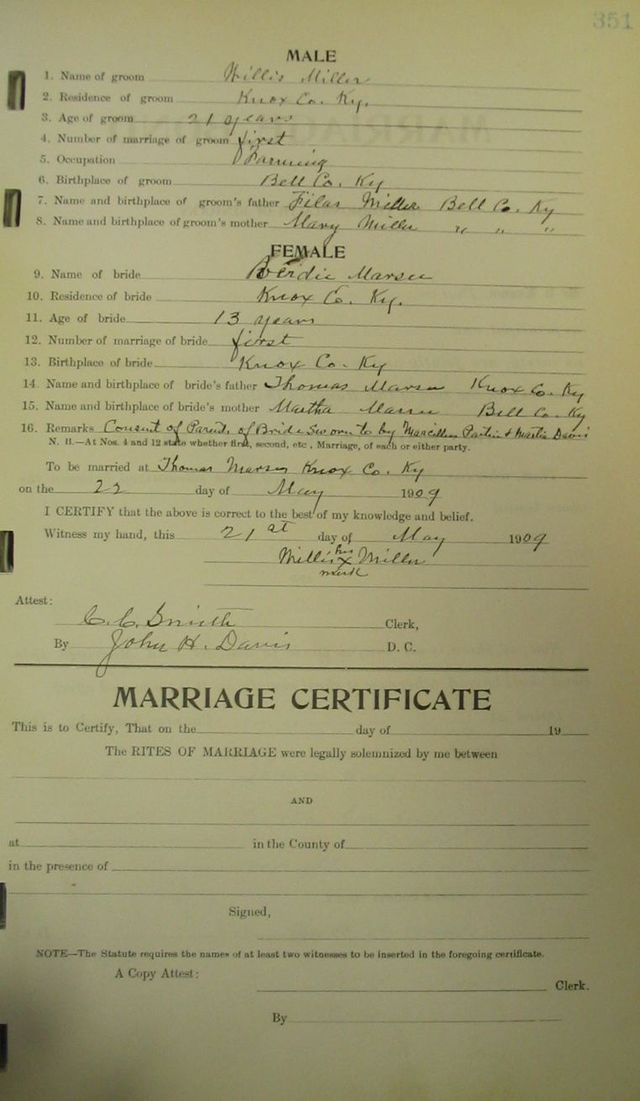 351
MALE
1. Name of groom Willis Miller
2. Residence of groom Knox Co. Ky.
3. Age of groom 21 years
4. Number of marriage of groom first
5. Occupation Farming
6. Birthplace of groom Bell Co. Ky
7. Name and birthplace of groom's father Filas Miller Bell Co. Ky
8. Name and birthplace of groom's mother Mary Miller " " "
FEMALE
9. Name of bride Berdie Marsee
10. Residence of bride Knox Co. Ky.
11. Age of bride 13 years
12. Number of marriage of bride first
13. Birthplace of bride Knox Co. Ky
14. Name and birthplace of bride's father Thomas Marsee Knox Co. Ky
15. Name and birthplace of bride's mother Martha Marsee Bell Co. Ky
16. Remarks Consent of Parents of Bride Sworn to by & Davis
N. B.—At Nos. 4 and 12 state whether first, second, etc., Marriage, of each or either party.
To be married at Thomas Marsee Knox Co. Ky
on the 22 day of May 1909
I CERTIFY that the above is correct to the best of my knowledge and belief.
Witness my hand, this 21st day of May 1909
Willis his x mark Miller
Attest:
C. C. Smith Clerk,
By John H. Davis D. C.
MARRIAGE CERTIFICATE
This is to Certify, That on the day of 19
The RITES OF MARRIAGE were legally solemnized by me between
AND
at in the County of
in the presence of
Signed,
NOTE—The Statute requires the names of at least two witnesses to be inserted in the foregoing certificate.
A Copy Attest:
Clerk.
By